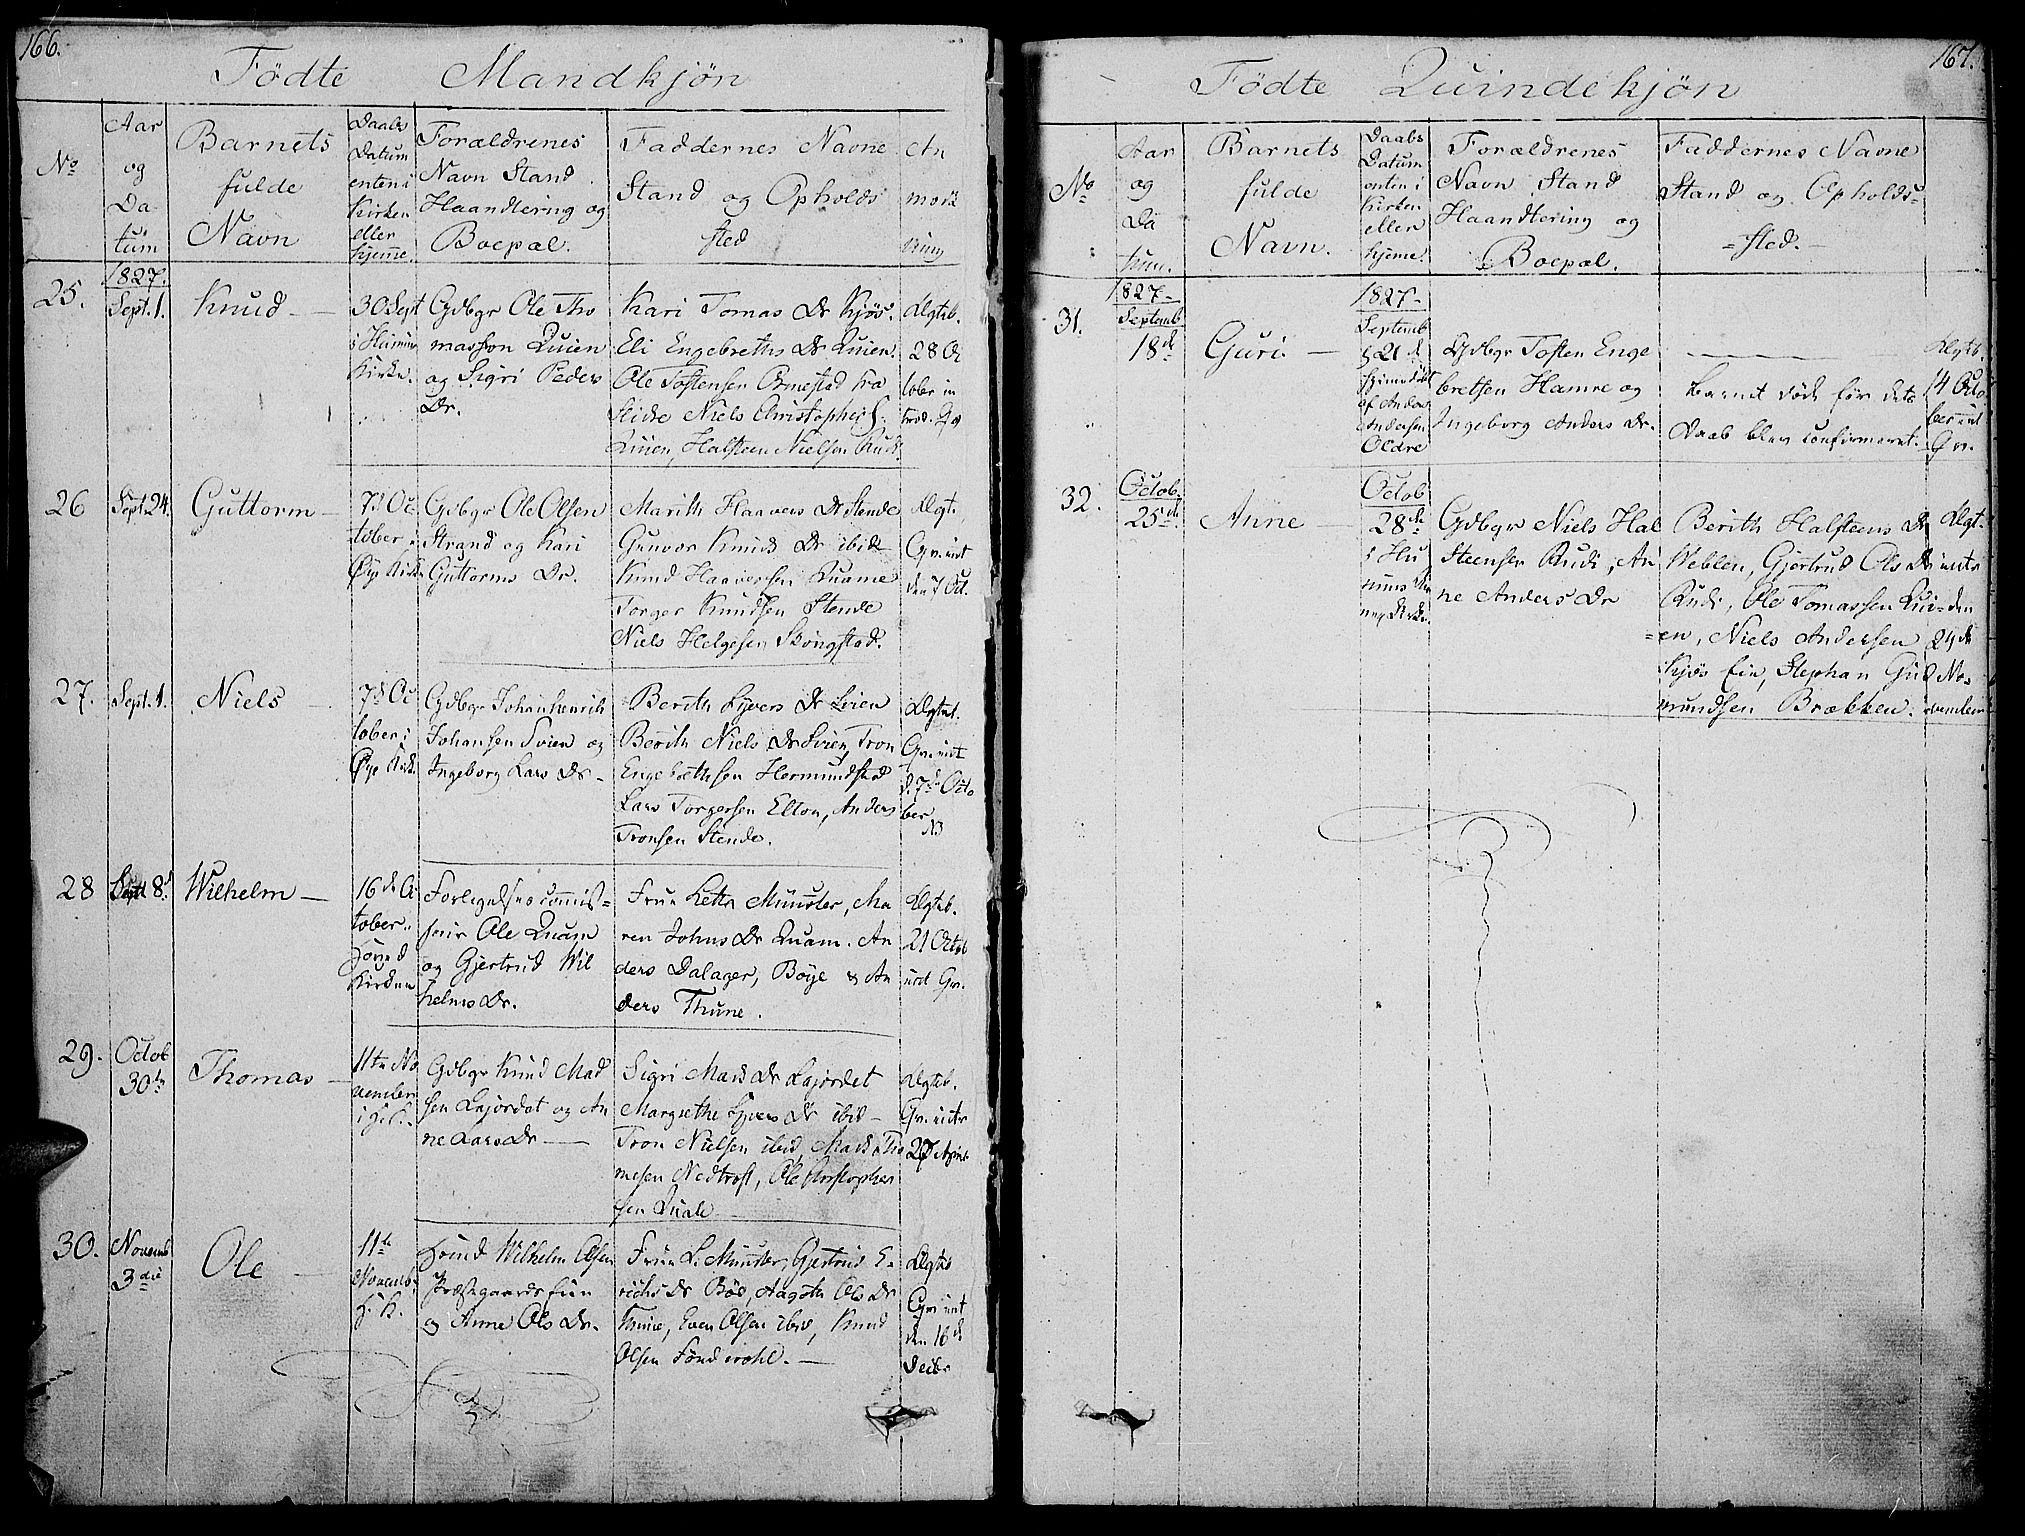 166.
Födte Mandkjön
No
Aar
og
Da-
tum
Barnets
fulde
Navn
Daabs
Datum
enten i
Kirken
eller
hjemme.
Forældrenes
Navn Stand
Haandtering og
Boepæl.
Faddernes Navne
Stand og Opholds
sted
An
mærk
ning
25.
1827.
Sept. 1.
Knud
30 Sept
Kirke.
Gdbgr Ole Tho
masson Quien
og Sigri Peders
Dr.
Kari Tomas Dr Kjös.
Eli Engebreths Dr Quien.
Ole Tostensen Ormestad fra
Slidre Niels Christophers.
Quien, Halsteen Nielsen Rudi.
Dlgtsb.
28 Oc
tober in
trod. Gv
26
Sept. 24.
Guttorm
7d Oc
tober i
Øye Kirk.
Gdbgr Ole Olsen
Strand og Kari
Guttorms Dr.
Marith Haavers Dr Stende
Gunvor Knuds Dr ibid
Knud Haaversen Quame
Torger Knudsen Stende
Niels Helgesen Skongstad.
Dlgts.
Gv. int
den 7 Oct.
27.
Sept. 1.
Niels
7d Oc
tober i
Øye Kirk.
Gdbgr Johanhenrik
Johansen Svien og
Ingeborg Lars Dr
Berith Syvers Dr Leien
Berith Niels Dr Svien, Tron
Engebrethsen Hermundstad
Lars Torgersen Elton, Anders
Tronsen Stende.
Dlgtsb.
Gv. int
d. 7de Octo
ber
28
Sept 8d
Wilhelm
16 de Oc
tober
Kirken
Forligelsescommis=
sair Ole Quam
og Gjertrud Wil
helms Dr.
Frue Letta Münster, Ma
ren Johns Dr Quam. An
ders Dalager, Böye & An
ders Thune.
Dlgtsb.
21 Octob
int Gv.
29.
Octob
30te
Thomas
11te No
vember
Gdbgr Knud Mad
sen Lajordet og An
ne Lars Dr
Sigri Mads Dr Lajordet
Margrethe Syvers Dr ibid
Tron Nielsen ibid, Mads Tho
mesen Nedtrost, Ole Christophers
sen Quale
Dlgtsb.
Gv. intr
27
30.
Novemb
3die
Ole
11te
Novemb.
H. K.
Wilhelm Olsen
Præstegaards eien
og Anne Ols Dr.
Frue L. Münster, Gjertrud E-
richs Dr Böe, Aagoth Ols Dr
Thune, Even Olsen ibid, Knud
Olsen
Dlgtsb
Gv. int
den 16 de
Decbr
167.
Födte Quindekjön
No
Aar
og
Da
tum.
Barnets
fulde
Navn.
Daabs
Datum
enten i
Kirken
eller
hjeme.
Forældrenes
Navn Stand
Haandtering og
Boepæl.
Faddernes Navne
Stand og Opholds=
=sted.
31.
1827
Septemb
18 de
Guri
1827
Septemb
21 d
hjemedöbt
af Anders
Andersen
Oldre
Gdbgr Tosten Enge
bretsen Hamre og
Ingeborg Anders Dr.
Barnet döde för dets
Daab blev confirmeret.
Dlgtsb.
14 Octo
ber int
Gv.
32.
Octob.
25 de
Anne
Octob
28 de
Gdbgr Niels Hal
steensen Rudi, An
ne Anders Dr
Berith Halsteens Dr
Weblen, Gjertrud Ols Dr
Rudi, Ole Tomassen Qui=
=en, Niels Andersen
Kjös Eie, Stephan Gud
mundsen Brækken.
Dlgt.
intr
den
24 de
No
vember